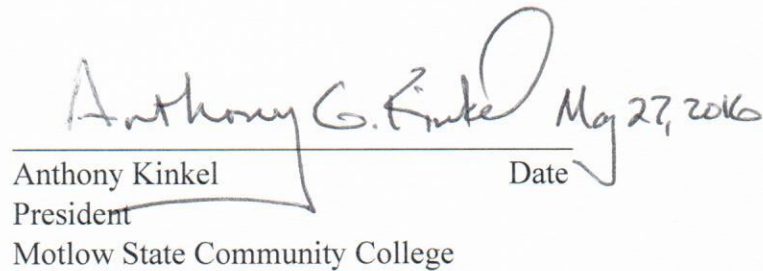 Anthony G. Kinkel May 27, 2016
Anthony Kinkel Date
President
Motlow State Community College